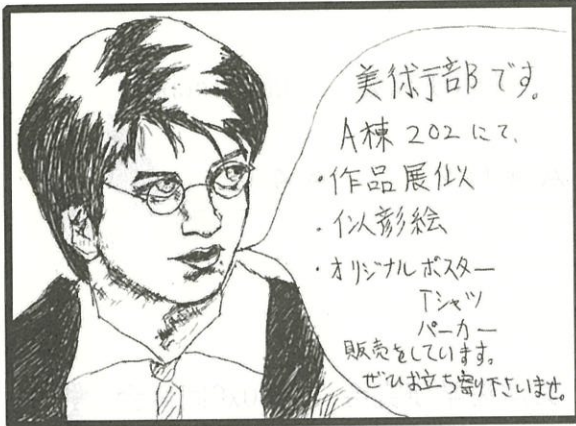 美術部です。
A棟 202 にて、
・作品展
・似顔絵
・オリジナルポスター
Tシャツ
パーカー
販売をしています。
ぜひお立ち寄り下さいませ。